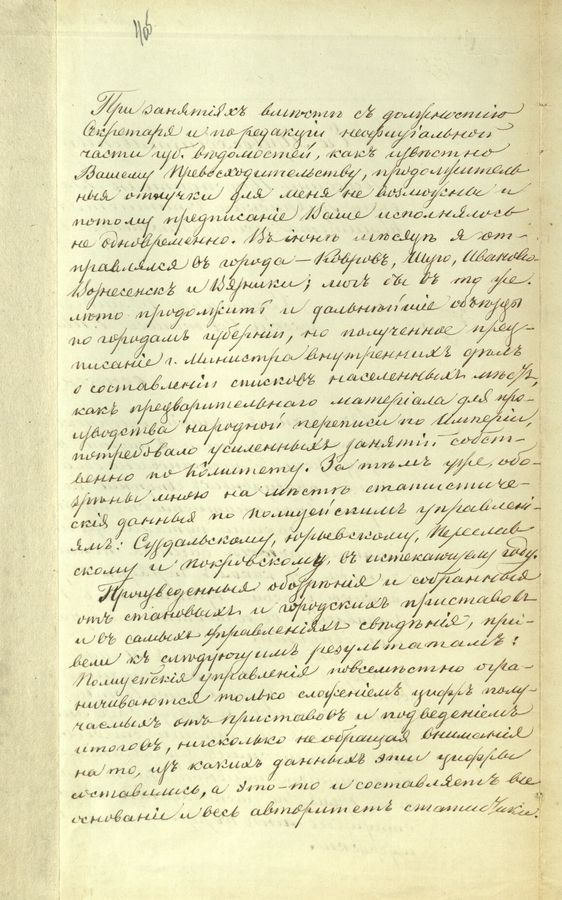 При занятіяхъ вмѣстѣ съ должностію
Секретаря и по редакціи неофиціальной
части губ. вѣдомостей, какъ извѣстно
Вашему Превосходительству, продолжитель
ныя отлучки для меня не возможны и
потому предписаніе Ваше исполнялось
не одновременно. Въ іюнѣ мѣсяцѣ я от-
правлялся въ города – Ковровъ, Шую, Иваново-
Вознесенскъ и Вязники; могъ бы въ тд же
лѣто продолжить и дальнѣйшіе объѣзды
по городамъ губерніи, но полученное пред-
писаніе г. Министра внутреннихъ дѣлъ
о составленіи списковъ населенныхъ мѣстъ,
какъ предварительнаго матеріала для про-
изводства народной переписи по Имперіи,
потребовало усиленныхъ занятій собст-
венно по Комитету. За тѣмъ уже, обо-
зрѣны мною на мѣстѣ статистиче-
скія данныя по полицейскимъ управлені-
ямъ: Суздальскому, Юрьевскому, Переслав
скому и Покровскому, въ истекающемъ году.
Произведенныя обозрѣнія и собранныя
отъ становыхъ и городскихъ приставовъ
и въ самыхъ управленіяхъ свѣдѣнія, при-
вели къ слѣдующимъ результатамъ:
Полицейскія управленія повсемѣстно огра-
ничиваются только сложеніемъ цифръ полу-
чаемыхъ отъ приставовъ и подведеніемъ
итоговъ, нисколько не обращая вниманія
на то, изъ какихъ данныхъ эти цифры
составились, а это-то и составляетъ все
основаніе и весь авторитетъ статистики.